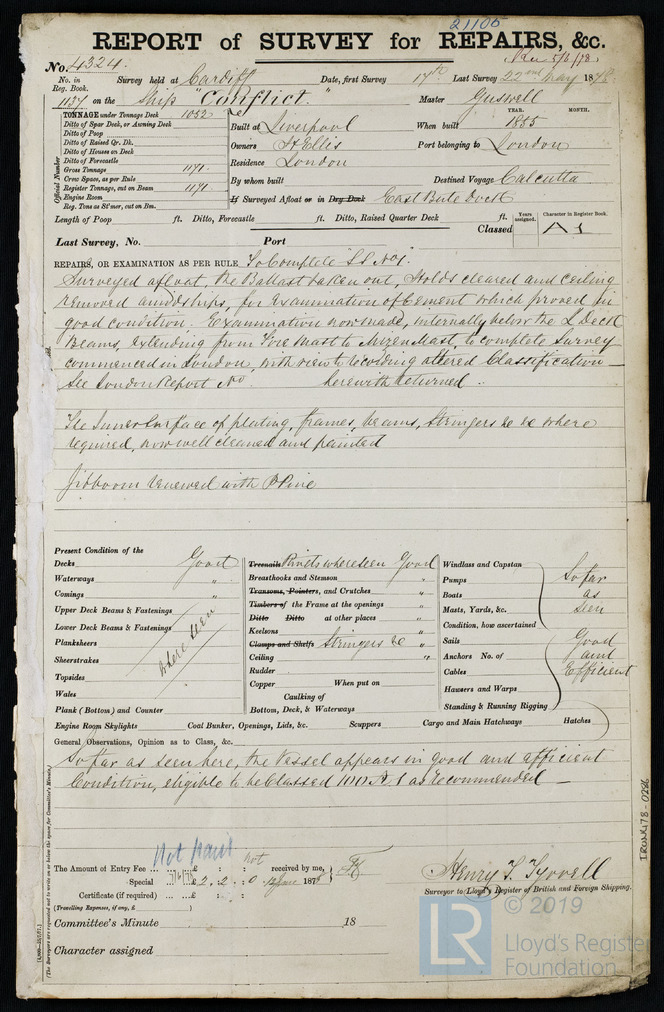 21105
REPORT of SURVEY for REPAIRS, &c.
No. 4324. Rec 5/6/78
No. in Reg. Book. Survey held at Cardiff Date, first Survey 17th Last Survey 22nd May 1878
1127 on the Ship "Conflict." Master Guswell
TONNAGE under Tonnage Deck 1052
Ditto of Spar Deck, or Awning Deck
Ditto of Poop
Ditto of Raised Qr. Dk.
Ditto of Houses on Deck
Ditto of Forecastle
Gross Tonnage 1171
Crew Space, as per Rule
Register Tonnage, cut on Beam 1171
Engine Room
Reg. Tons as St'mer, cut on Bm.
Official Number
YEAR. MONTH.
Built at Liverpool When built 1855
Owners Port belonging to London
Residence London
By whom built Destined Voyage Calcutta
If Surveyed Afloat or in Dry Dock East Bute Dock
Length of Poop ft. Ditto, Forecastle ft. Ditto, Raised Quarter Deck ft.
Classed Years assigned. Character in Register Book. A1
Last Survey, No. Port
REPAIRS, OR EXAMINATION AS PER RULE To Complete S.S. No 1.
Surveyed afloat, the Ballast taken out, Holds cleared and ceiling
removed amidships, for Examination of Cement which proved in
good condition. Examination now made, internally below the L Deck
Beams, extending from Fore Mast to Mizen Mast, to complete Survey
commenced in London, with view to altered Classification
See London Report No herewith returned.
The Inner Surface of plating, frames, beams, Stringers &c &c where
required, now well cleaned and painted
Jibboom renewed with P Pine
Present Condition of the
Decks Good
Waterways "
Comings "
Upper Deck Beams & Fastenings
Lower Deck Beams & Fastenings
Planksheers
Sheerstrakes
Topsides
Wales
Plank (Bottom) and Counter
where seen
Treenails Rivets where seen Good
Breasthooks and Stemson "
Transoms, Pointers, and Crutches "
Timbers of the Frame at the openings "
Ditto Ditto at other places "
Keelsons "
Clamps and Shelfs Stringers &c "
Ceiling "
Rudder
Copper When put on
Caulking of
Bottom, Deck, & Waterways
Windlass and Capstan
Pumps So far
Boats as
Masts, Yards, &c. seen
Condition, how ascertained
Sails Good
Anchors No. of and
Cables Efficient
Hawsers and Warps
Standing & Running Rigging
Engine Room Skylights Coal Bunker, Openings, Lids, &c. Scuppers Cargo and Main Hatchways Hatches
General Observations, Opinion as to Class, &c.
So far as seen here, the Vessel appears in good and efficient
Condition, eligible to be Classed 100 A1 as recommended
Not paid
The Amount of Entry Fee £ : : not received by me,
Special £ 2 . 2 . 0 12 June 1878
Certificate (if required) £ : :
(Travelling Expenses, if any, £ )
Henry T. Tyrrell
Surveyor to Lloyd's Register of British and Foreign Shipping.
Committee's Minute 18
Character assigned
(The Surveyors are requested not to write on or below the space for Committee's Minute.)
IRON478-0286
© 2019
LR
Lloyd's Register
Foundation